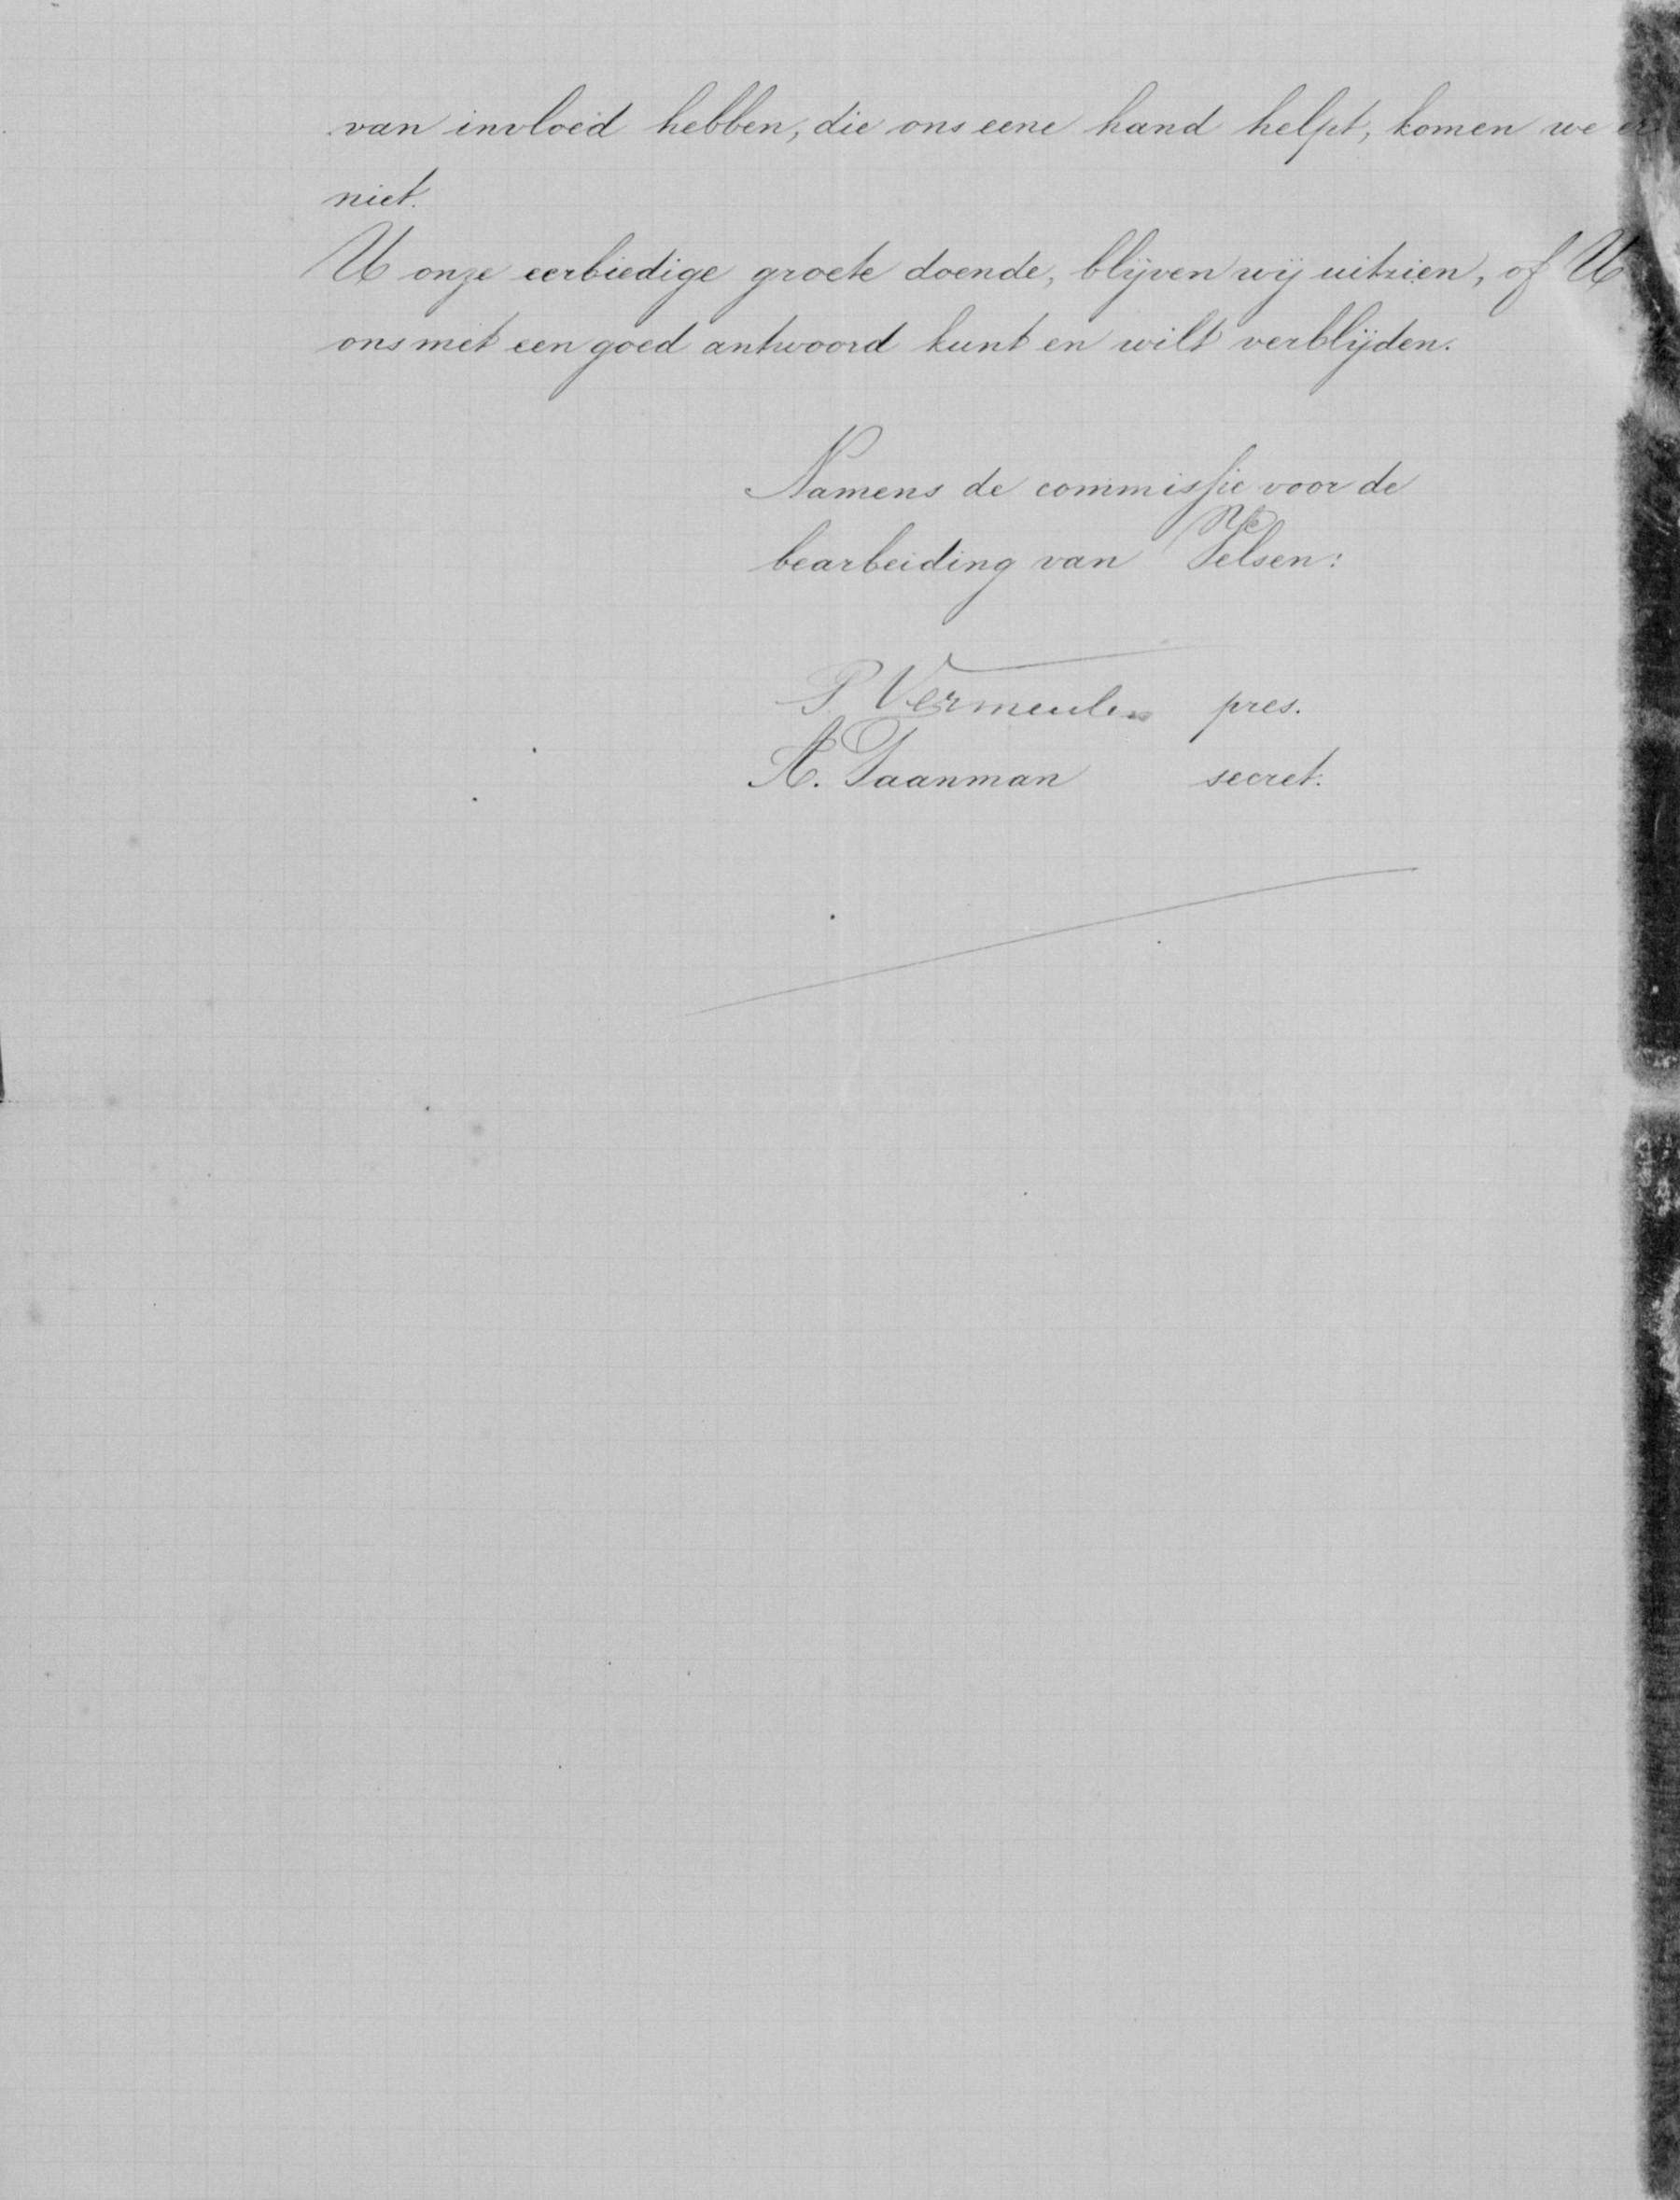 van invloed hebben, die ons eene hand helpt, komen we er
niet.
U onze eerbiedige groete doende, blijven wij uitzien, of U
ons met een goed antwoord kunt en wilt verblijden.
Namens de commissie voor de
bearbeiding van Velsen:
P. Vermeulen pres.
A. Taanman secret.